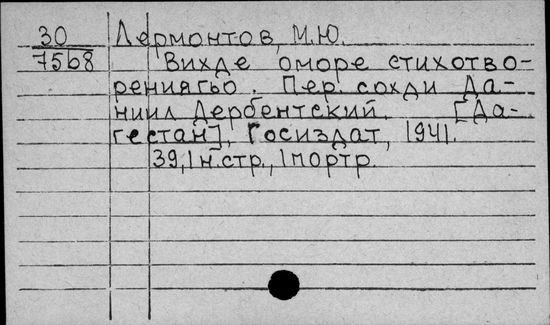 30 Лермонтов, М.Ю.
7568 Вихде оморе стихотво-
рениягьо. Пер. сохди Да-
ниил Дербентский. [Да-
гестан], Госиздат, 1941.
39,1н.стр., 1портр.